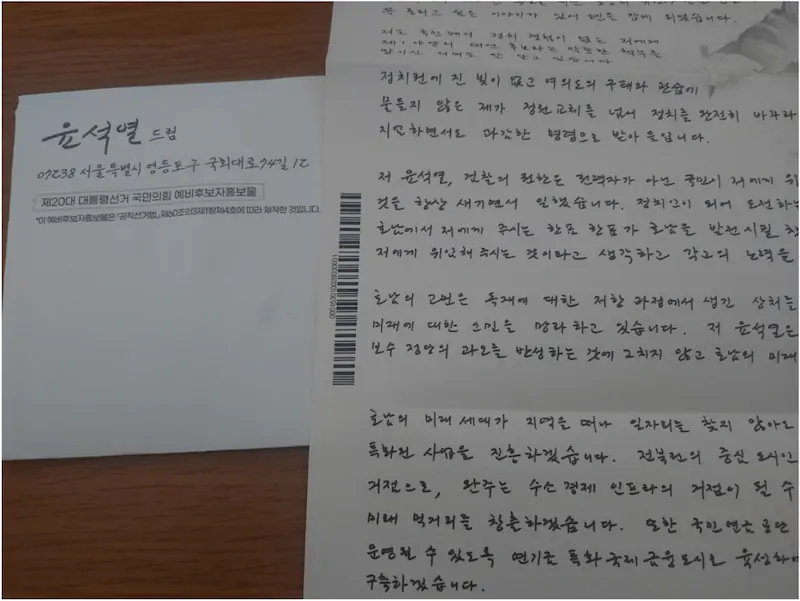 윤석열 드림
07238 서울특별시 영등포구 국회대로74길 12
제20대 대통령선거 국민의힘 예비후보자홍보물
*이 예비후보자홍보물은 「공직선거법」 제60조의3제1항제4호에 따라 제작한 것입니다.
꼭 드리고 싶은 이야기가 있어 펜을 잡게 되었습니다.
정치 경험이 없는 저에게
제1야당의 대선 후보라는 막중한 책무를
있습니다
정치권에 진 빚이 없고 여의도의 구태와 관습에
물들지 않은 제가 정권교체를 넘어 정치를 완전히 바꾸라
지엄하면서도 과감한 명령으로 받아들입니다.
저 윤석열, 검찰의 권한은 권력자가 아닌 국민이 저에게 위
것을 항상 새기면서 일했습니다. 정치인이 되어 도전하는
호남에서 저에게 주시는 한표 한표가 호남을 발전시킬
저에게 위임해 주시는 것이라고 생각하고 각고의 노력을
호남의 고민은 독재에 대한 저항 과정에서 생긴 상처를
미래에 대한 고민을 망라하고 있습니다. 저 윤석열은
보수 정당의 과오를 반성하는 것에 그치지 않고 호남의 미래
호남의 미래 세대가 지역을 떠나 일자리를 찾지 않아도
특화된 사업을 진흥하겠습니다. 전북권의 중심 도시인
거점으로, 완주는 수소 경제 인프라의 거점이 될 수
미래 먹거리를 창출하겠습니다. 또한 국민연금 공단
운영될 수 있도록 연기금 특화 국제 금융도시로 육성하
구축하겠습니다.